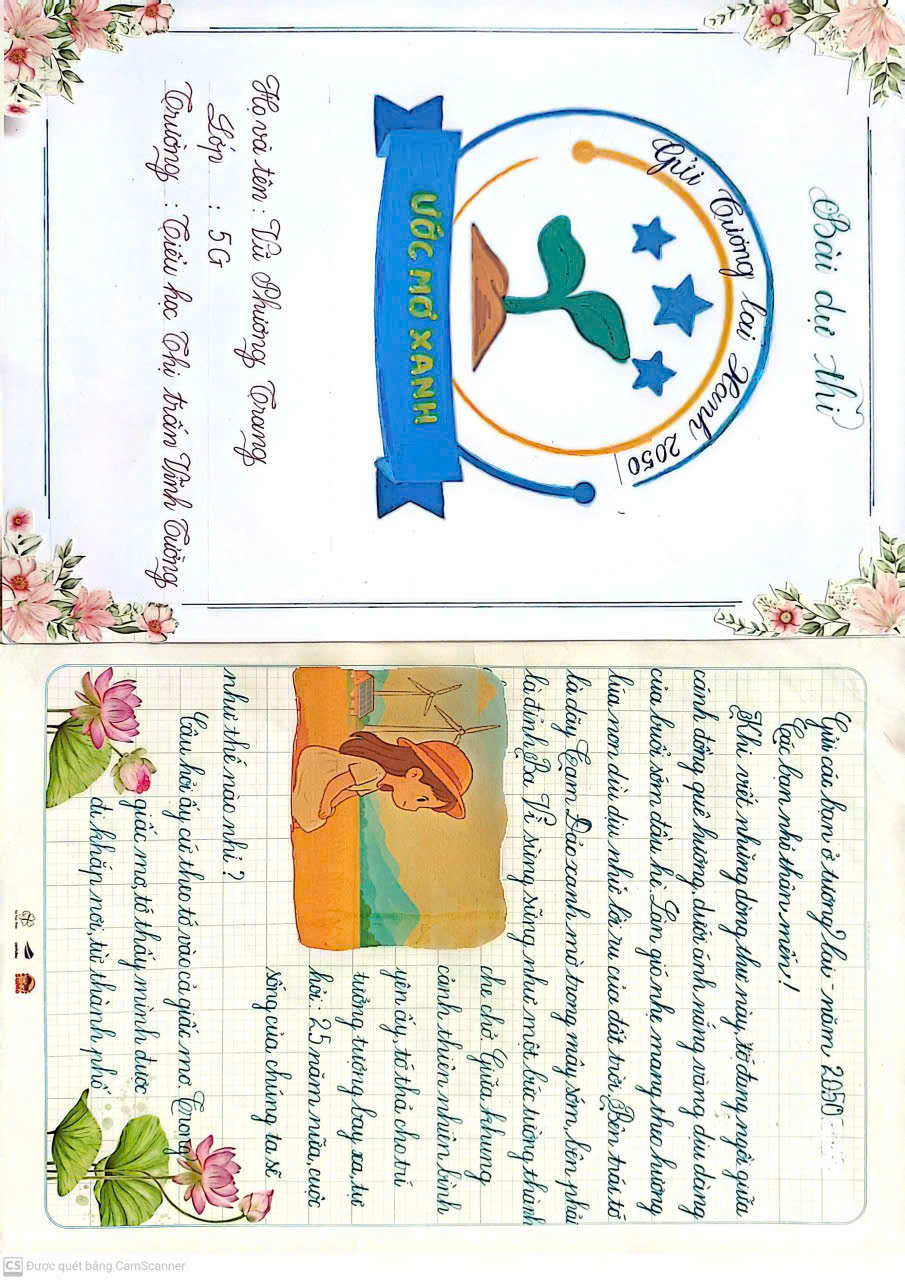 Bài dự thi
Gửi Tương lai Xanh 2050
ƯỚC MƠ XANH
Họ và tên : Vũ Phương Trang
Lớp : 5G
Trường : Tiểu học Thị trấn Vĩnh Tường
Gửi các bạn ở tương lai - năm 2050
Các bạn nhỏ thân mến!
Khi viết những dòng thư này, tớ đang ngồi giữa
cánh đồng quê hương, dưới ánh nắng vàng dịu dàng
của buổi sớm đầu hè. Làn gió nhẹ mang theo hương
lúa non dìu dịu như lời ru của đất trời. Bên trái tớ
là dãy Tam Đảo xanh mờ trong mây sớm, bên phải
là đỉnh Ba Vì sừng sững như một bức tường thành
che chở. Giữa khung
cảnh thiên nhiên bình
yên ấy, tớ thả cho trí
tưởng tượng bay xa, tự
hỏi: 25 năm nữa, cuộc
sống của chúng ta sẽ
như thế nào nhỉ?
Câu hỏi ấy cứ theo tớ vào cả giấc mơ. Trong
giấc mơ, tớ thấy mình được
đi khắp nơi, từ thành phố
CS Được quét bằng CamScanner